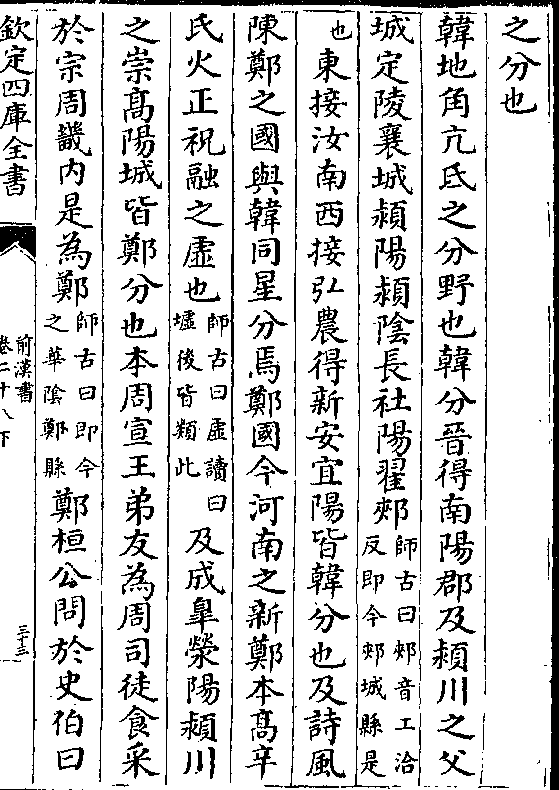 之分也
韓地角亢氐之分野也韓分晉得南陽郡及潁川之父
城定陵襄城潁陽潁隂長社陽翟郟師古曰郟音工洽反即今郟城縣是
也東接汝南西接弘農得新安宜陽皆韓分也及詩風
陳鄭之國與韓同星分焉鄭國今河南之新鄭本髙辛
氏火正祝融之虛也師古曰虛讀曰墟後皆類此及成臯滎陽潁川
之崇髙陽城皆鄭分也本周宣王弟友為周司徒食采
於宗周畿内是為鄭師古曰即今之華隂鄭縣鄭桓公問於史伯曰
欽定四庫全書
前漢書
卷二十八下
三十三